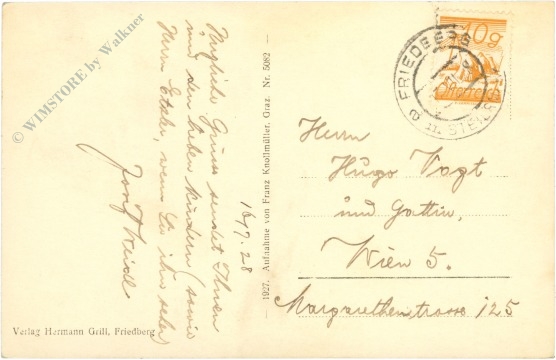 © WIMSTORE by Walkner
Herzliche Grüsse sendet Ihnen
und den lieben Kindern (sowie
Herrn Etzler, wenn Sie ihn sehen)
Josef
16/7. 28
1927. Aufnahme von Franz Knollmüller, Graz. Nr. 5082
Verlag Hermann Grill, Friedberg
10g
FRIEDBERG
Herrn
Hugo Vogt
und Gattin,
Wien 5.
Margarethenstrasse 125